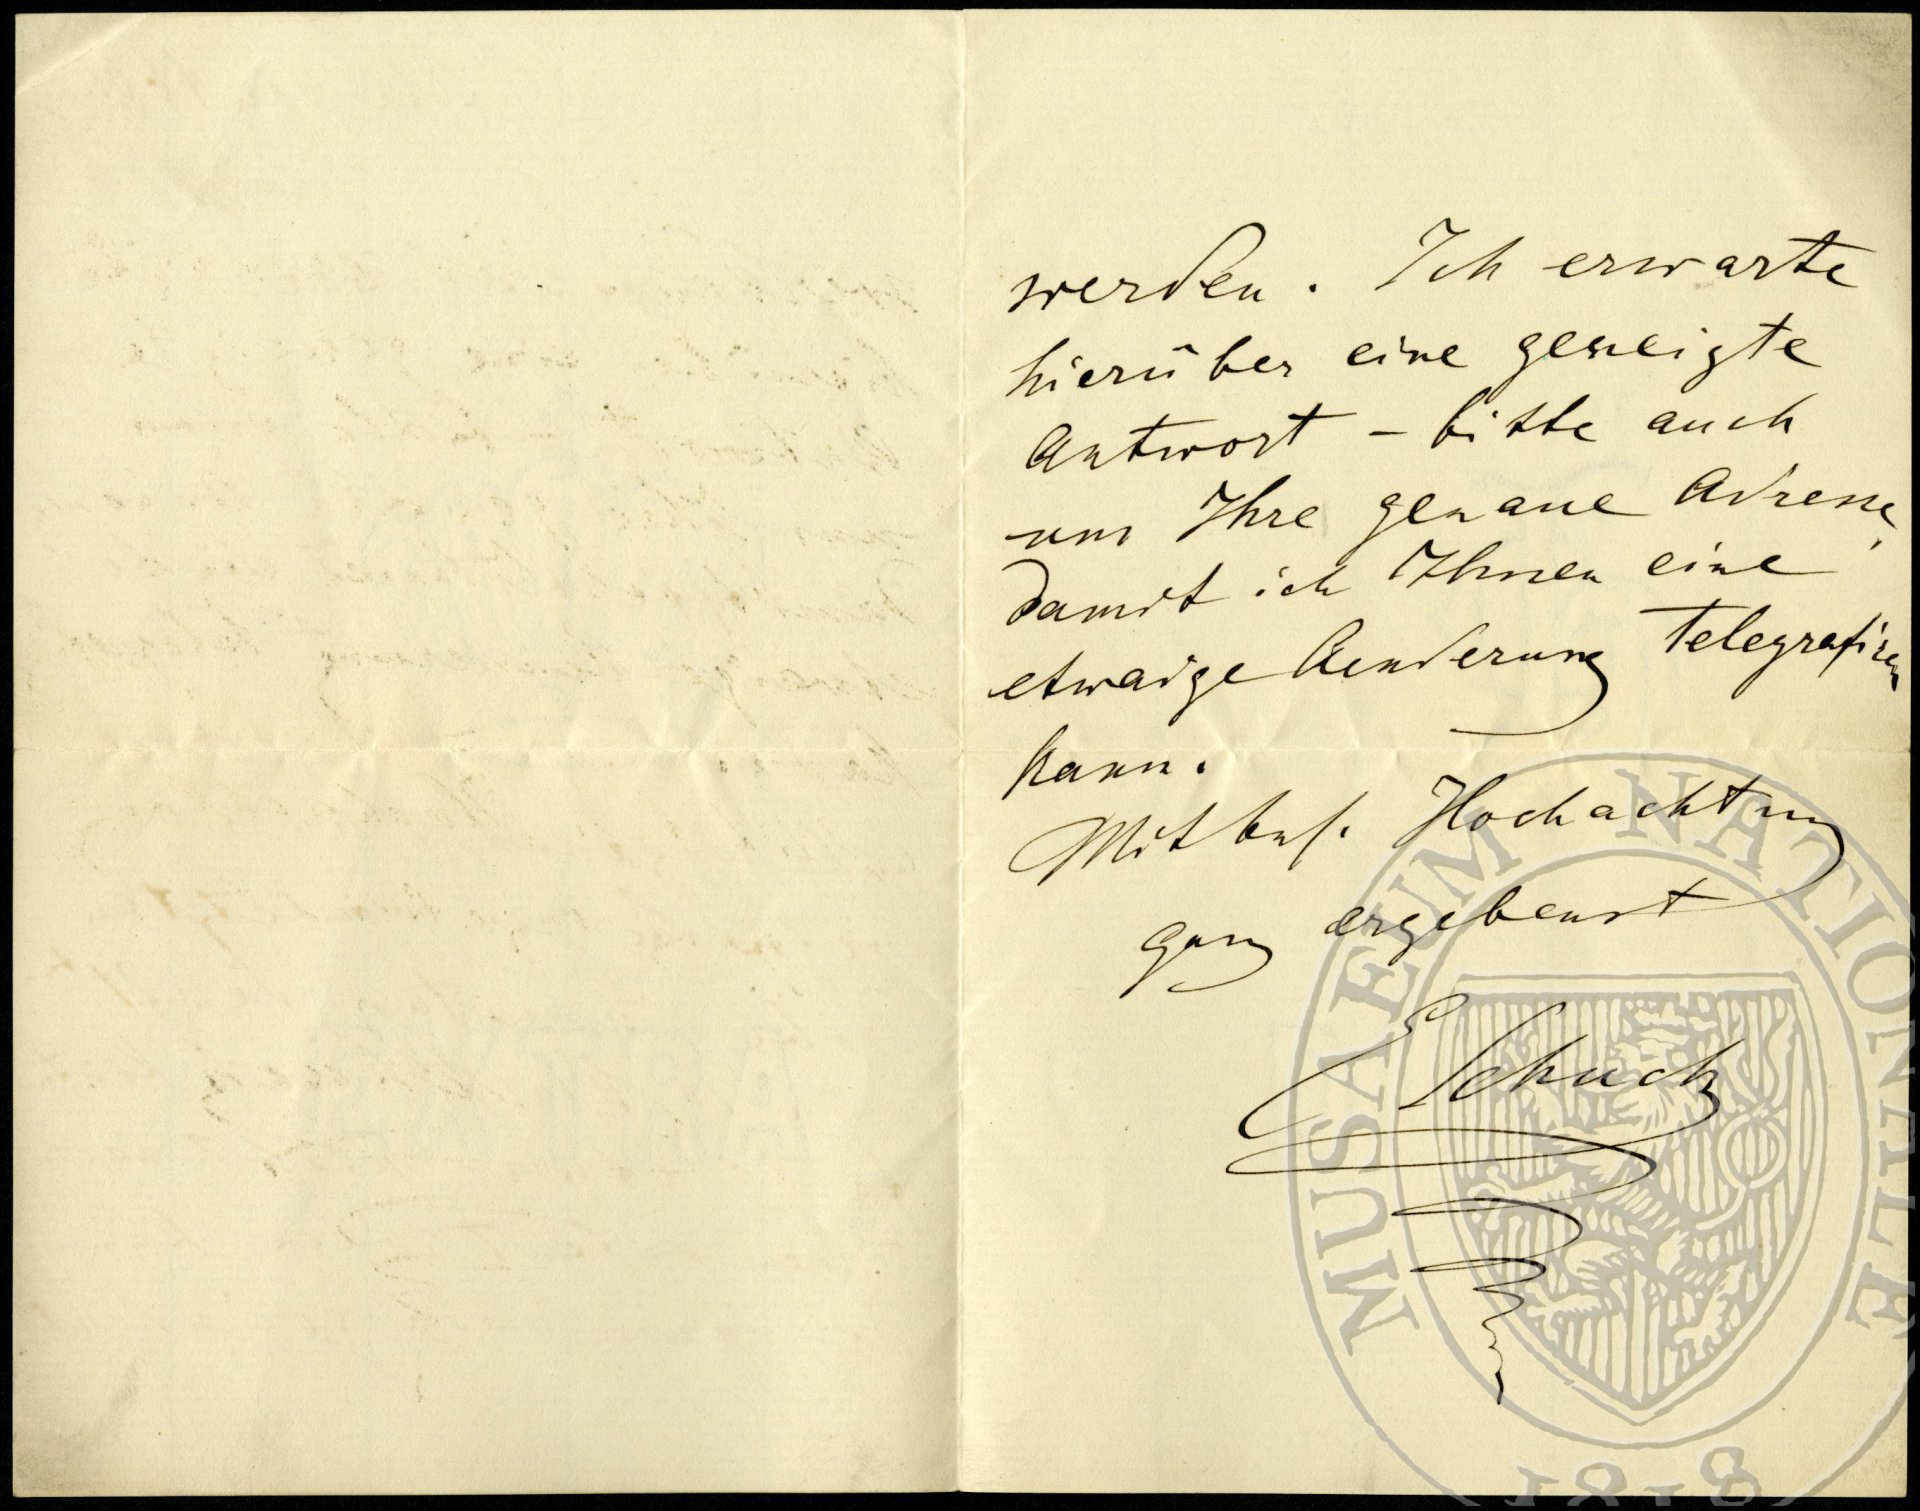 werden. Ich erwarte
hierüber eine geneigte
Antwort – bitte auch
um Ihre genaue Adresse,
damit ich Ihnen eine
etwaige Aenderung telegrafiren
kann.
Mit Hochachtung
ganz ergebenst
ESchuch
MUSAEUM NATIONALE
1818